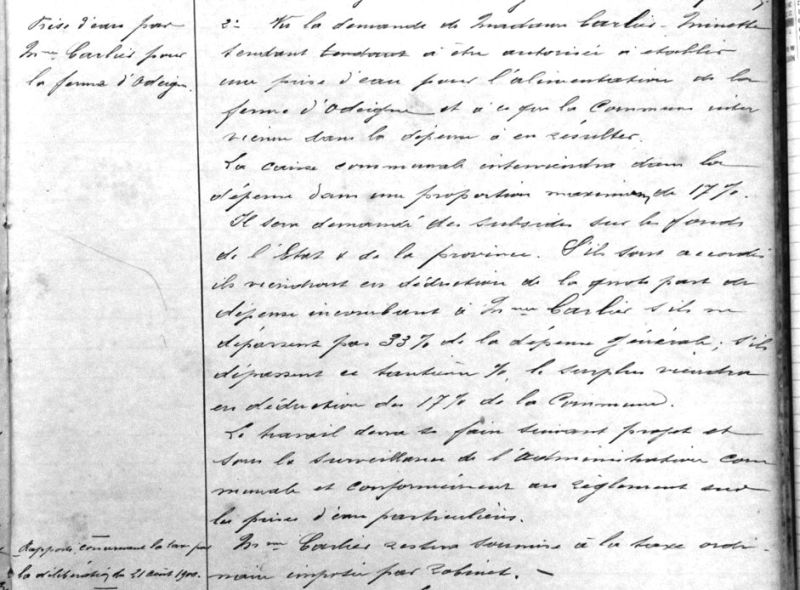 Prise d'eau par
Mme Carlier pour
la ferme d'Odeigne.
2° Vu la demande de Madame Carlier-Minette
tendant tendant à être autorisée à établir
une prise d'eau pour l'alimentation de la
ferme d'Odeigne et à ce que la Commune inter
vienne dans la dépense à en résulter.
La caisse communale interviendra dans la
dépense dans une proportion maximum de 17%.
Il sera demandé des subsides sur les fonds
de l'Etat & de la province. S'ils sont accordés
ils viendront en déduction de la quote part de
dépense incombant à Mme Carlier s'ils ne
dépassent pas 33% de la dépense générale; s'ils
dépassent ce tantième %, le surplus viendra
en déduction des 17% de la Commune.
Le travail devra se faire suivant projet et
sous la surveillance de l'administration com
munale et conformément au règlement sur
les prises d'eau particulières.
Mme Carlier restera soumise à la taxe ordi-
naire imposée par robinet. —
Rapporté concernant la taxe par
la délibération du 21 août 1900.